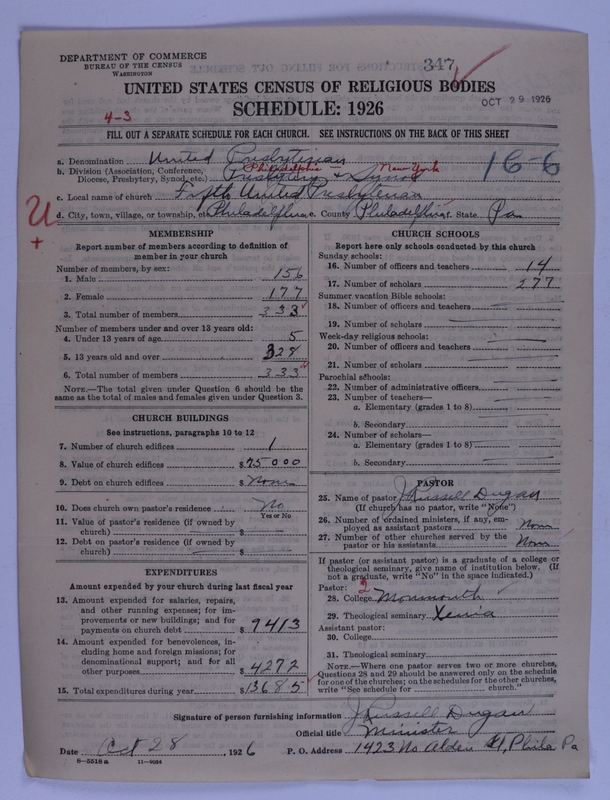 DEPARTMENT OF COMMERCE
BUREAU OF THE CENSUS
WASHINGTON
347
UNITED STATES CENSUS OF RELIGIOUS BODIES
SCHEDULE: 1926
OCT 29 1926
4-3
FILL OUT A SEPARATE SCHEDULE FOR EACH CHURCH. SEE INSTRUCTIONS ON THE BACK OF THIS SHEET
a. Denomination United Presbyterian
16-6
Philadelphia New York
b. Division (Association, Conference, Diocese, Presbytery, Synod, etc.) Presbytery & Synod
c. Local name of church Fifth United Presbyterian
U
+
d. City, town, village, or township, etc. Philadelphia e. County Philadelphia f. State Pa
MEMBERSHIP
Report number of members according to definition of
member in your church
Number of members, by sex:
1. Male 156
2. Female 177
3. Total number of members 333
Number of members under and over 13 years old:
4. Under 13 years of age 5
5. 13 years old and over 328
6. Total number of members 333
NOTE.—The total given under Question 6 should be the
same as the total of males and females given under Question 3.
CHURCH BUILDINGS
See instructions, paragraphs 10 to 12
7. Number of church edifices 1
8. Value of church edifices $75000
9. Debt on church edifices $ None
10. Does church own pastor's residence No
Yes or No
11. Value of pastor's residence (if owned by
church) $
12. Debt on pastor's residence (if owned by
church) $
EXPENDITURES
Amount expended by your church during last fiscal year
13. Amount expended for salaries, repairs,
and other running expenses; for im-
provements or new buildings; and for
payments on church debt $9413
14. Amount expended for benevolences, in-
cluding home and foreign missions; for
denominational support; and for all
other purposes $4272
15. Total expenditures during year $13685
CHURCH SCHOOLS
Report here only schools conducted by this church
Sunday schools:
16. Number of officers and teachers 14
17. Number of scholars 277
Summer vacation Bible schools:
18. Number of officers and teachers
19. Number of scholars
Week-day religious schools:
20. Number of officers and teachers
21. Number of scholars
Parochial schools:
22. Number of administrative officers
23. Number of teachers—
a. Elementary (grades 1 to 8)
b. Secondary
24. Number of scholars—
a. Elementary (grades 1 to 8)
b. Secondary
PASTOR
25. Name of pastor J Russell Dugan
(If church has no pastor, write "None")
26. Number of ordained ministers, if any, em-
ployed as assistant pastors None
27. Number of other churches served by the
pastor or his assistants None
If pastor (or assistant pastor) is a graduate of a college or
theological seminary, give name of institution below. (If
not a graduate, write "No" in the space indicated.)
Pastor: 2
28. College Monmouth
29. Theological seminary Xenia
Assistant pastor:
30. College
31. Theological seminary
NOTE.—Where one pastor serves two or more churches,
Questions 28 and 29 should be answered only on the schedule
for one of the churches; on the schedules for the other churches,
write "See schedule for church."
Signature of person furnishing information J Russell Dugan
Official title Minister
Date Oct 28, 1926 P. O. Address 1423 No Alden St, Phila Pa
8—5518a 11—9084